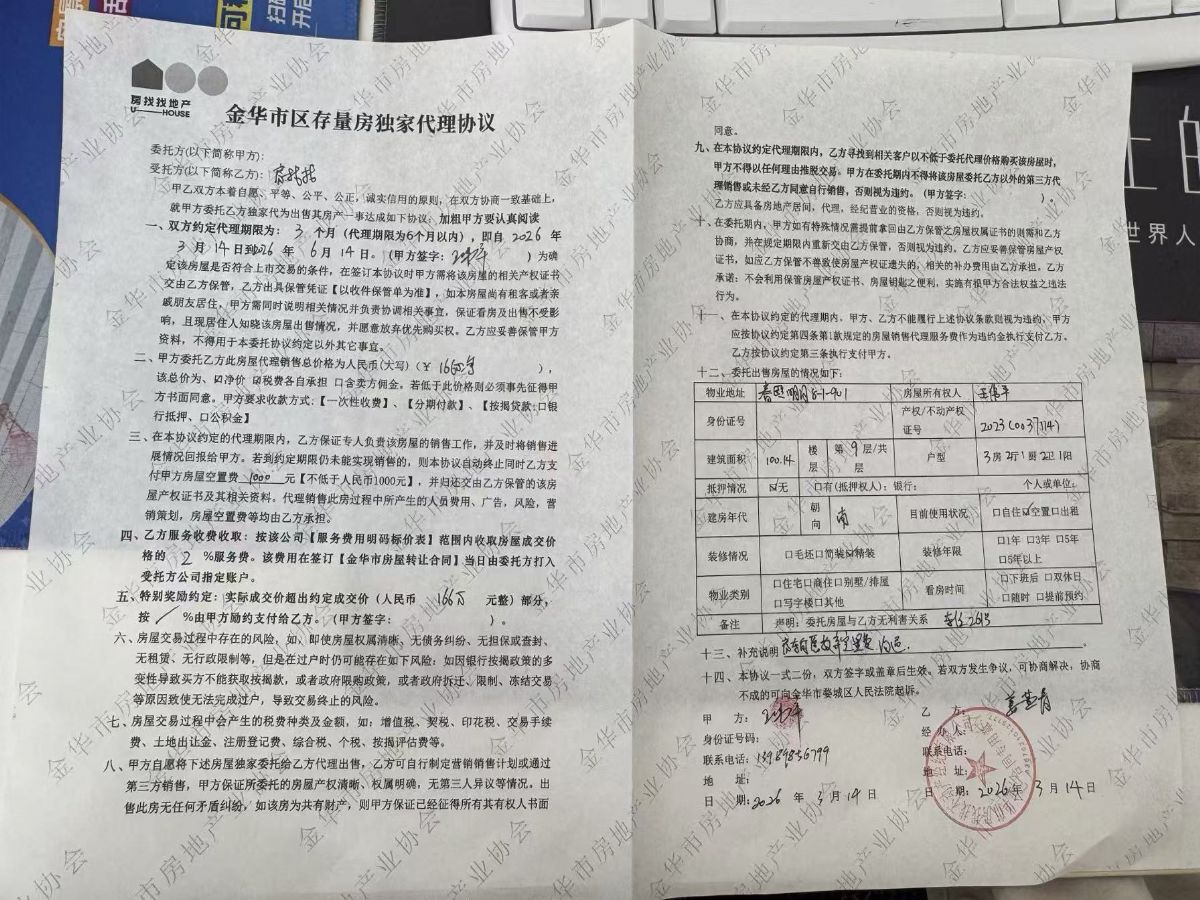 房找找地产
U HOUSE
金华市区存量房独家代理协议
委托方(以下简称甲方):
受托方(以下简称乙方): 房找找
甲乙双方本着自愿、平等、公平、公正，诚实信用的原则，在双方协商一致基础上，
就甲方委托乙方独家代为出售其房产一事达成如下协议: 加粗甲方要认真阅读
一、双方约定代理期限为: 3 个月（代理期限为6个月以内），即自 2026 年
3 月 14 日到2026 年 6 月 14 日。（甲方签字: ）为确
定该房屋是否符合上市交易的条件，在签订本协议时甲方需将该房屋的相关产权证书
交由乙方保管，乙方出具保管凭证【以收件保管单为准】，如本房屋尚有租客或者亲
戚朋友居住，甲方需同时说明相关情况并负责协调相关事宜，保证看房及出售不受影
响，且现居住人知晓该房屋出售情况，并愿意放弃优先购买权。乙方应妥善保管甲方
资料，不得用于本委托协议约定以外其它事宜。
二、甲方委托乙方此房屋代理销售总价格为人民币(大写)（￥ ），
该总价为、☑净价 ☑税费各自承担 口含卖方佣金。若低于此价格则必须事先征得甲
方书面同意。甲方要求收款方式:【一次性收费】、【分期付款】、【按揭贷款:口银
行抵押、口公积金】
三、在本协议约定的代理期限内，乙方保证专人负责该房屋的销售工作，并及时将销售进
展情况回报给甲方。若到约定期限仍未能实现销售的，则本协议自动终止同时乙方支
付甲方房屋空置费 1000 元【不低于人民币1000元】，并归还交由乙方保管的该房
屋产权证书及其相关资料。代理销售此房过程中所产生的人员费用、广告，风险，营
销策划，房屋空置费等均由乙方承担。
四、乙方服务收费收取: 按该公司【服务费用明码标价表】范围内收取房屋成交价
格的 2 %服务费。该费用在签订【金华市房屋转让合同】当日由委托方打入
受托方公司指定账户。
五、特别奖励约定: 实际成交价超出约定成交价（人民币 166万 元整）部分，
按 / %由甲方励约支付给乙方。（甲方签字: ）。
六、房屋交易过程中存在的风险，如，即使房屋权属清晰、无债务纠纷、无担保或查封、
无租赁、无行政限制等，但是在过户时仍可能存在如下风险: 如因银行按揭政策的多
变性导致买方不能获取按揭款，或者政府限购政策，或者政府拆迁、限制、冻结交易
等原因致使无法完成过户，导致交易终止的风险。
七、房屋交易过程中会产生的税费种类及金额，如: 增值税、契税、印花税、交易手续
费、土地出让金、注册登记费、综合税、个税、按揭评估费等。
八、甲方自愿将下述房屋独家委托给乙方代理出售，乙方可自行制定营销销售计划或通过
第三方销售，甲方保证所委托的房屋产权清晰、权属明确，无第三人异议等情况。出
售此房无任何矛盾纠纷，如该房为共有财产，则甲方保证已经征得所有其有权人书面
同意。
九、在本协议约定代理期限内，乙方寻找到相关客户以不低于委托代理价格购买该房屋时，
甲方不得以任何理由推脱交易。甲方在委托期内不得将该房屋委托乙方以外的第三方代
理销售或未经乙方同意自行销售，否则视为违约。（甲方签字: ）。
乙方应具备房地产居间，代理，经纪营业的资格，否则视为违约。
十、在委托期内，甲方如有特殊情况需提前拿回由乙方保管之房屋权属证书的则需和乙方
协商，并在规定期限内重新交由乙方保管，否则视为违约。乙方应妥善保管房屋产权
证书，如应乙方保管不善致使房屋产权证遗失的，相关的补办费用由乙方承担。乙方
承诺: 不会利用保管房屋产权证书、房屋钥匙之便利，实施有很甲方合法权益之违法
行为。
十一、在本协议约定的代理期内，甲方、乙方不能履行上述协议条款则视为违约，甲方
应按协议约定第四条第1款规定的房屋销售代理服务费作为违约金执行支付乙方。
乙方按协议约定第三条执行支付甲方。
十二、委托出售房屋的情况如下:
物业地址 春熙明月8-1-901 房屋所有权人
身份证号 产权/不动产权证号 2023(0037114)
建筑面积 100.14 楼层 第 9 层/共 层 户型 3房 2厅 1厨 2卫 1阳
抵押情况 ☑无 口有(抵押权人): 银行: 个人或单位:
建房年代 朝向 南 目前使用状况 口自住☑空置口出租
装修情况 口毛坯口简装☑精装 装修年限 口1年 口3年 口5年 口5年以上
物业类别 口住宅口商住口别墅/排屋 口写字楼口其他 看房时间 口下班后 口双休日 口随时 口提前预约
备注 声明: 委托房屋与乙方无利害关系
十三、补充说明
十四、本协议一式二份，双方签字或盖章后生效。若双方发生争议，可协商解决，协商
不成的可向金华市婺城区人民法院起诉。
甲 方:
乙 方:
身份证号码:
经 办 人:
联系电话: 13989856799
联系电话:
地 址:
地 址:
日 期: 2026 年 3 月 14 日
日 期: 2026 年 3 月 14 日
金华市房地产业协会
世界人